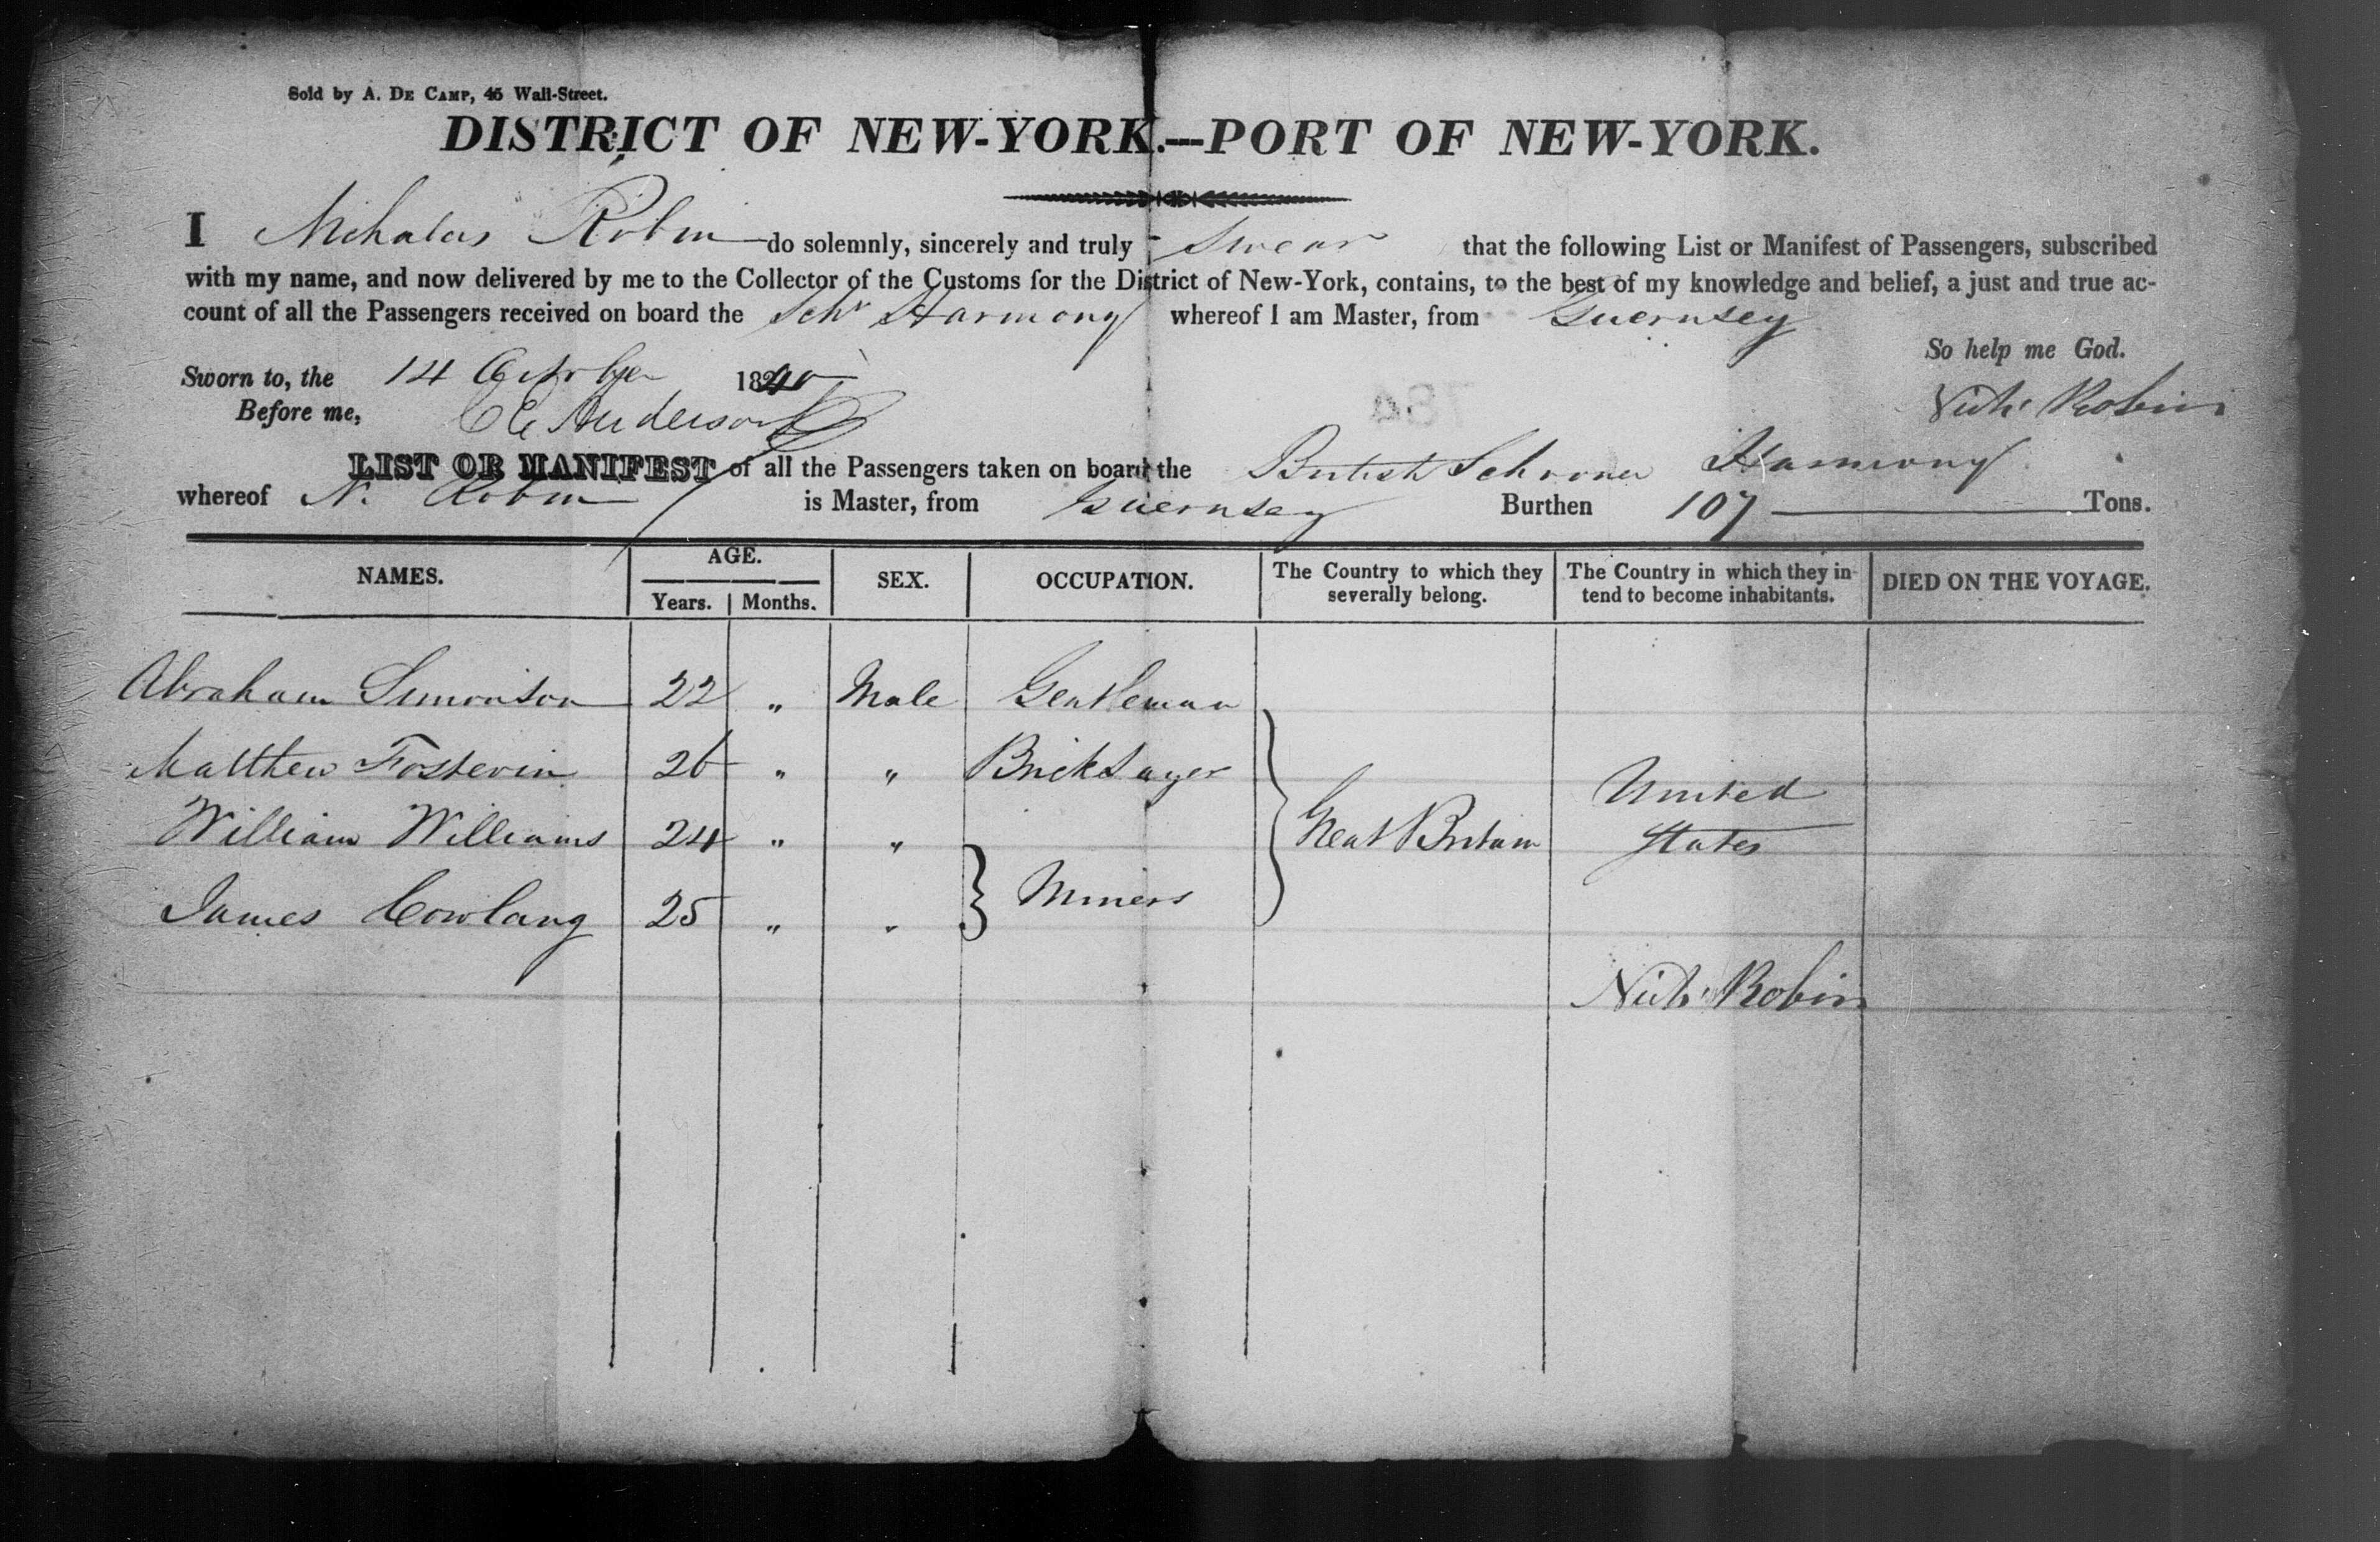 Sold by A. De Camp, 45 Wall-Street.
DISTRICT OF NEW-YORK.—PORT OF NEW-YORK.
I Nicholas Robin do solemnly, sincerely and truly Swear that the following List or Manifest of Passengers, subscribed
with my name, and now delivered by me to the Collector of the Customs for the District of New-York, contains, to the best of my knowledge and belief, a just and true ac-
count of all the Passengers received on board the Schr Harmony whereof I am Master, from Guernsey
So help me God.
Sworn to, the 14 October 1840
Nichs Robin
Before me, Anderson
LIST OR MANIFEST of all the Passengers taken on board the British Schooner Harmony
whereof N. Robin is Master, from Guernsey Burthen 107 Tons.
NAMES. AGE. Years. Months. SEX. OCCUPATION. The Country to which they severally belong. The Country in which they in-tend to become inhabitants. DIED ON THE VOYAGE.
Abraham Simonson 22 " Male Gentleman
Matthew Fostevin 26 " " Brick Layer
United
William Williams 24 " " Great Britain States
Miners
James Cowlang 25 " "
Nichs Robin